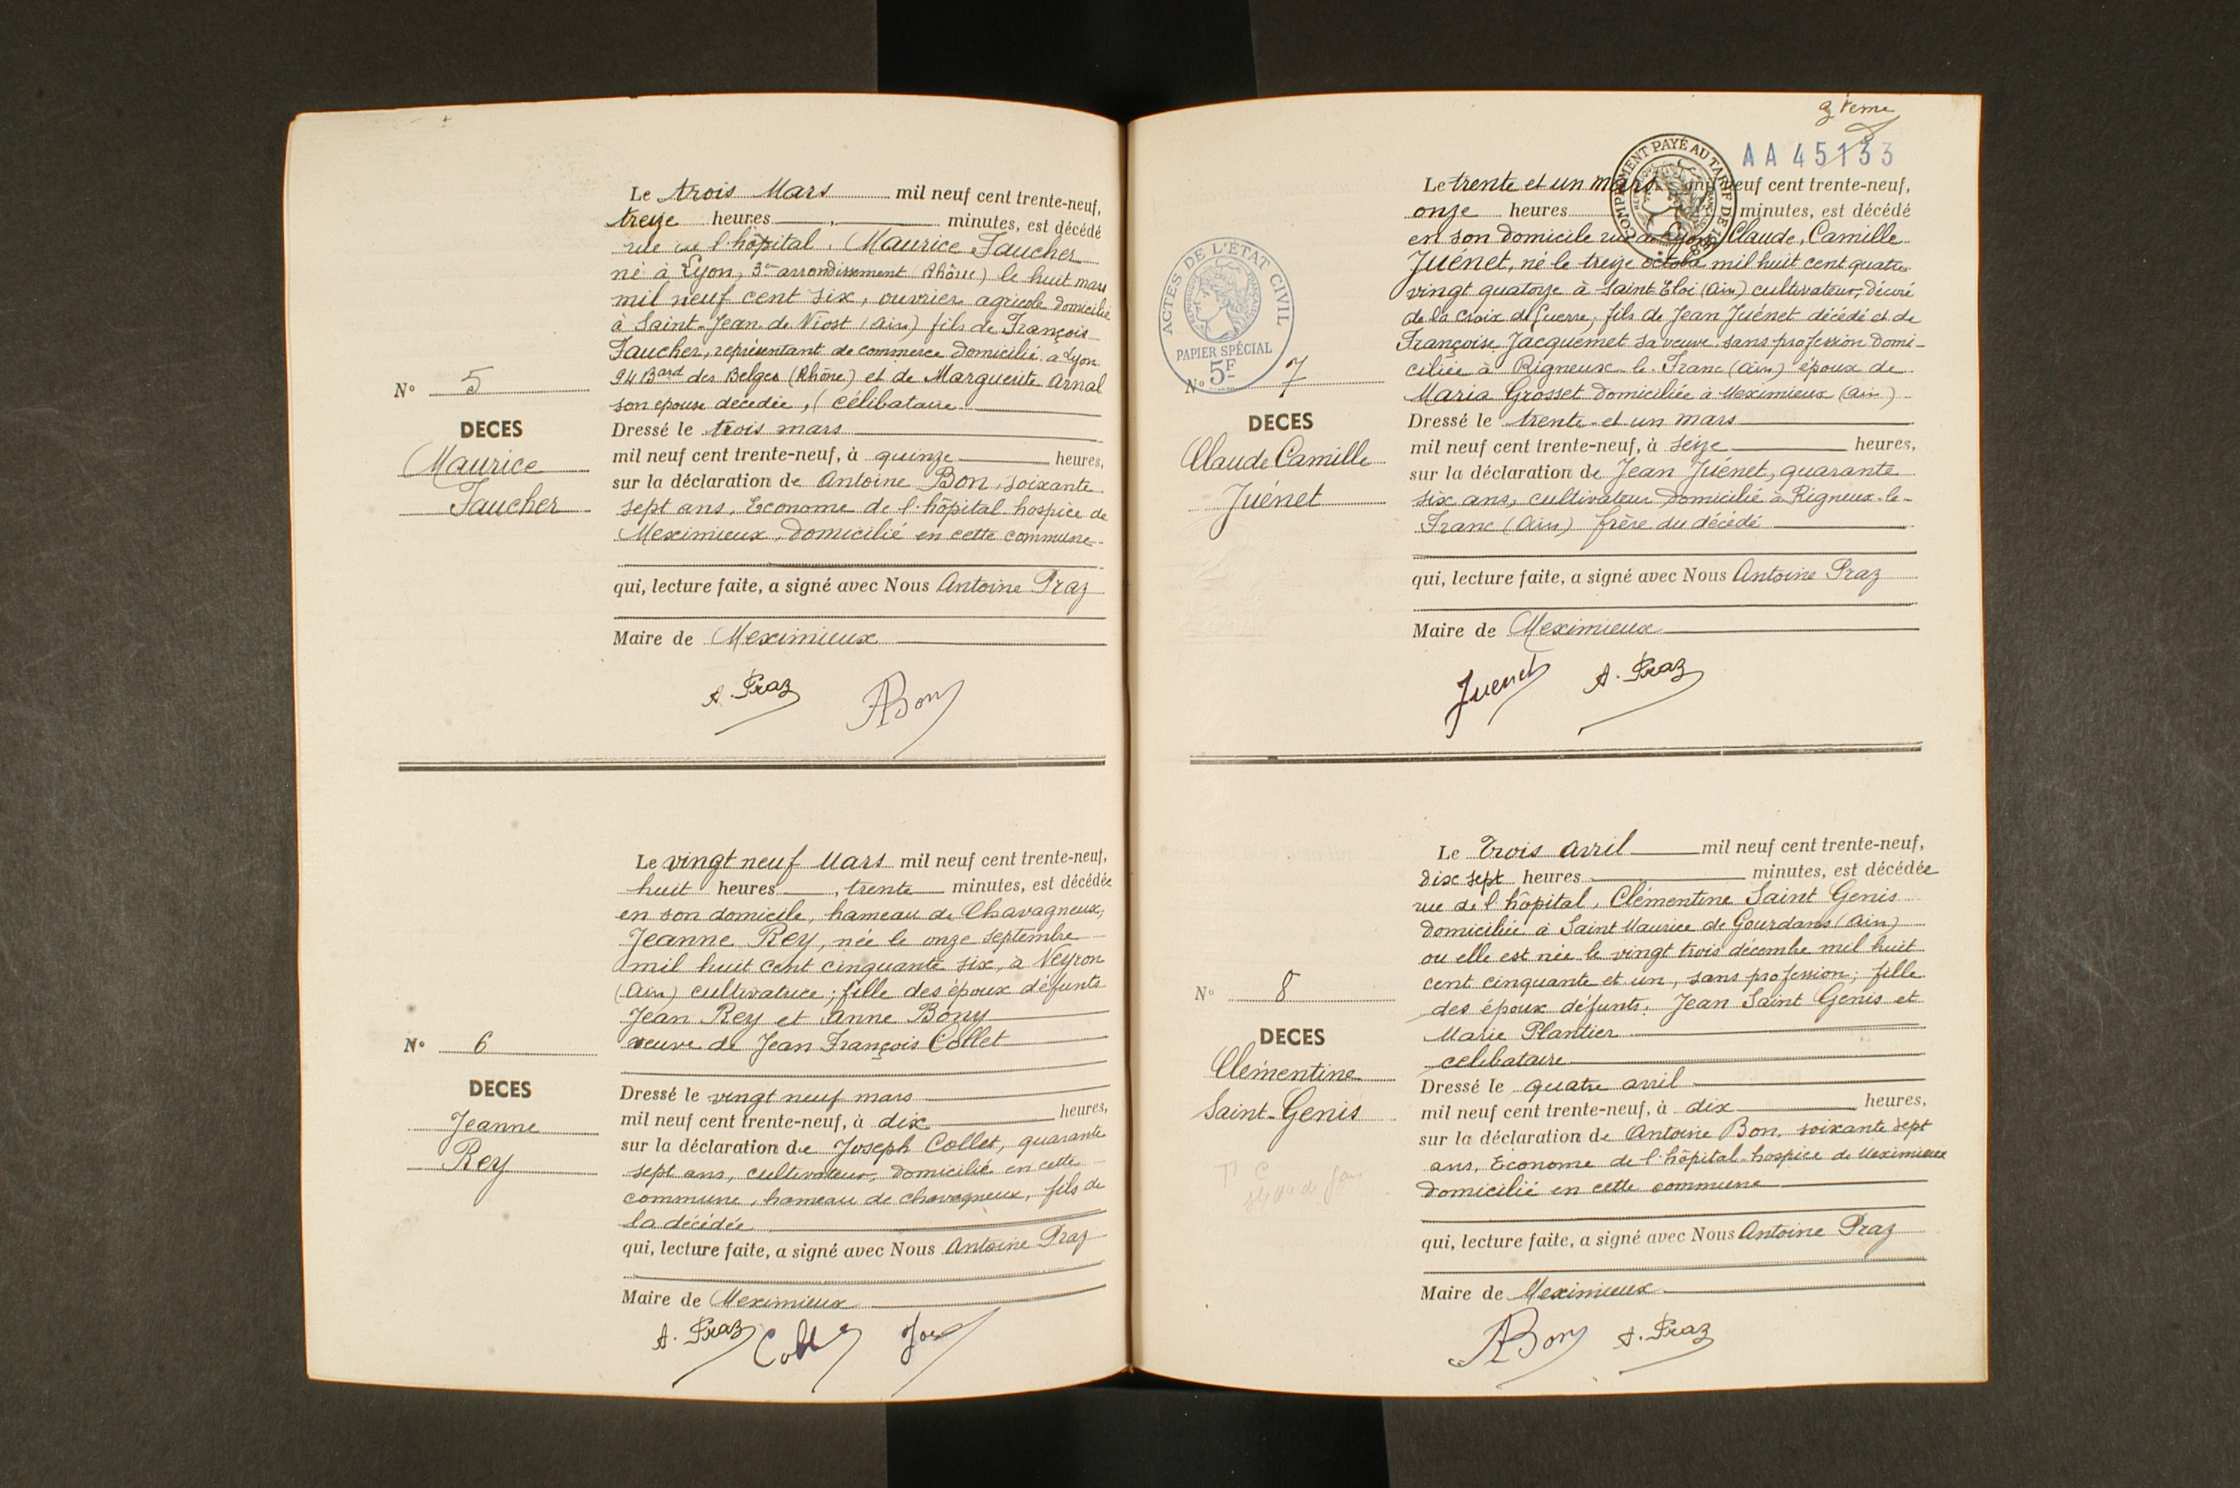 Le trois Mars mil neuf cent trente-neuf,
treize heures minutes, est décédé
rue de l'hôpital, Maurice Faucher
né à Lyon, 3e arrondissement (Rhône) le huit mars
mil neuf cent six, ouvrier agricole domicilié
à Saint-Jean de Niost (Ain) fils de François
Faucher, représentant de commerce domicilié à Lyon
94 Bard des Belges (Rhône) et de Marguerite Arnal
son épouse décédée, célibataire
N° 5
DECES
Maurice
Faucher
Dressé le trois mars
mil neuf cent trente-neuf, à quinze heures,
sur la déclaration de Antoine Bon, soixante
sept ans, Econome de l'hôpital hospice de
Meximieux, domicilié en cette commune
qui, lecture faite, a signé avec Nous Antoine Praz
Maire de Meximieux
A. Praz ABon
Le vingt neuf Mars mil neuf cent trente-neuf,
huit heures, trente minutes, est décédée
en son domicile, hameau de Chavagneux,
Jeanne Rey, née le onze septembre
mil huit cent cinquante six, à Neyron
(Ain) cultivatrice; fille des époux défunts
Jean Rey et Anne Bony
veuve de Jean François Collet
N° 6
DECES
Jeanne
Rey
Dressé le vingt neuf mars
mil neuf cent trente-neuf, à dix heures,
sur la déclaration de Joseph Collet, quarante
sept ans, cultivateur, domicilié en cette
commune, hameau de chavagneux, fils de
la décédée
qui, lecture faite, a signé avec Nous Antoine Praz
Maire de Meximieux
A. Praz
AA 45133
COMPLÉMENT PAYÉ AU TARIF DE
Le trente et un mars mil neuf cent trente-neuf,
onze heures minutes, est décédé
en son domicile rue de Lyon, Claude, Camille
Juénet, né le treize octobre mil huit cent quatre
vingt quatorze à Saint Eloi (Ain) cultivateur, décoré
de la Croix de Guerre, fils de Jean Juénet décédé et de
Françoise Jacquemet sa veuve sans profession domi-
ciliée à Rigneux-le-Franc (Ain) époux de
Maria Grosset domiciliée à Meximieux (Ain)
ACTES DE L'ÉTAT CIVIL
PAPIER SPÉCIAL
5F
N° 7
DECES
Claude Camille
Juénet
Dressé le trente et un mars
mil neuf cent trente-neuf, à seize heures,
sur la déclaration de Jean Juénet, quarante
six ans, cultivateur domicilié à Rigneux-le-
Franc (Ain) frère du décédé
qui, lecture faite, a signé avec Nous Antoine Praz
Maire de Meximieux
Juenet A. Praz
Le Trois avril mil neuf cent trente-neuf,
dix sept heures minutes, est décédée
rue de l'hôpital, Clémentine Saint Genis
domiciliée à Saint Maurice de Gourdans (Ain)
ou elle est née le vingt trois décembre mil huit
cent cinquante et un, sans profession; fille
des époux défunts, Jean Saint Genis et
Marie Plantier
célibataire
N° 8
DECES
Clémentine
Saint-Genis
Dressé le quatre avril
mil neuf cent trente-neuf, à dix heures,
sur la déclaration de Antoine Bon, soixante sept
ans, Econome de l'hôpital-hospice de Meximieux
domicilié en cette commune
qui, lecture faite, a signé avec Nous Antoine Praz
Maire de Meximieux
ABon A. Praz